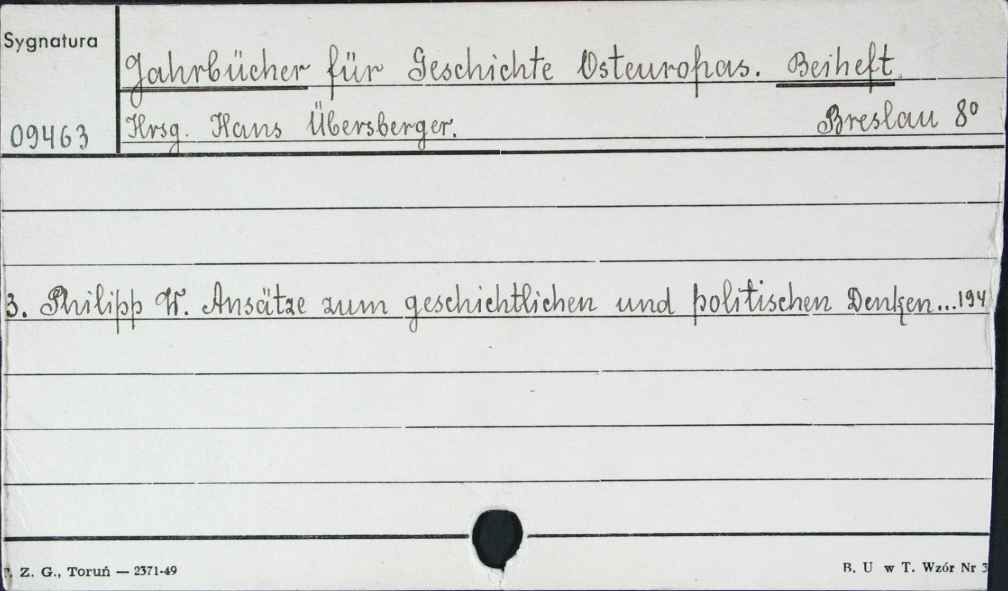 Sygnatura
Jahrbücher für Geschichte Osteuropas. Beiheft
09463 Hrsg. Hans Übersberger. Breslau 8°
3. Philipp W. Ansätze zum geschichtlichen und politischen Denken...194
Z. G., Toruń — 2371-49 B. U w T. Wzór Nr 3